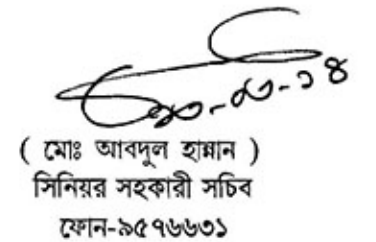 ( মোঃ আবদুল হান্নান )
সিনিয়র সহকারী সচিব
ফোন-৯৫৭৬৬৩১